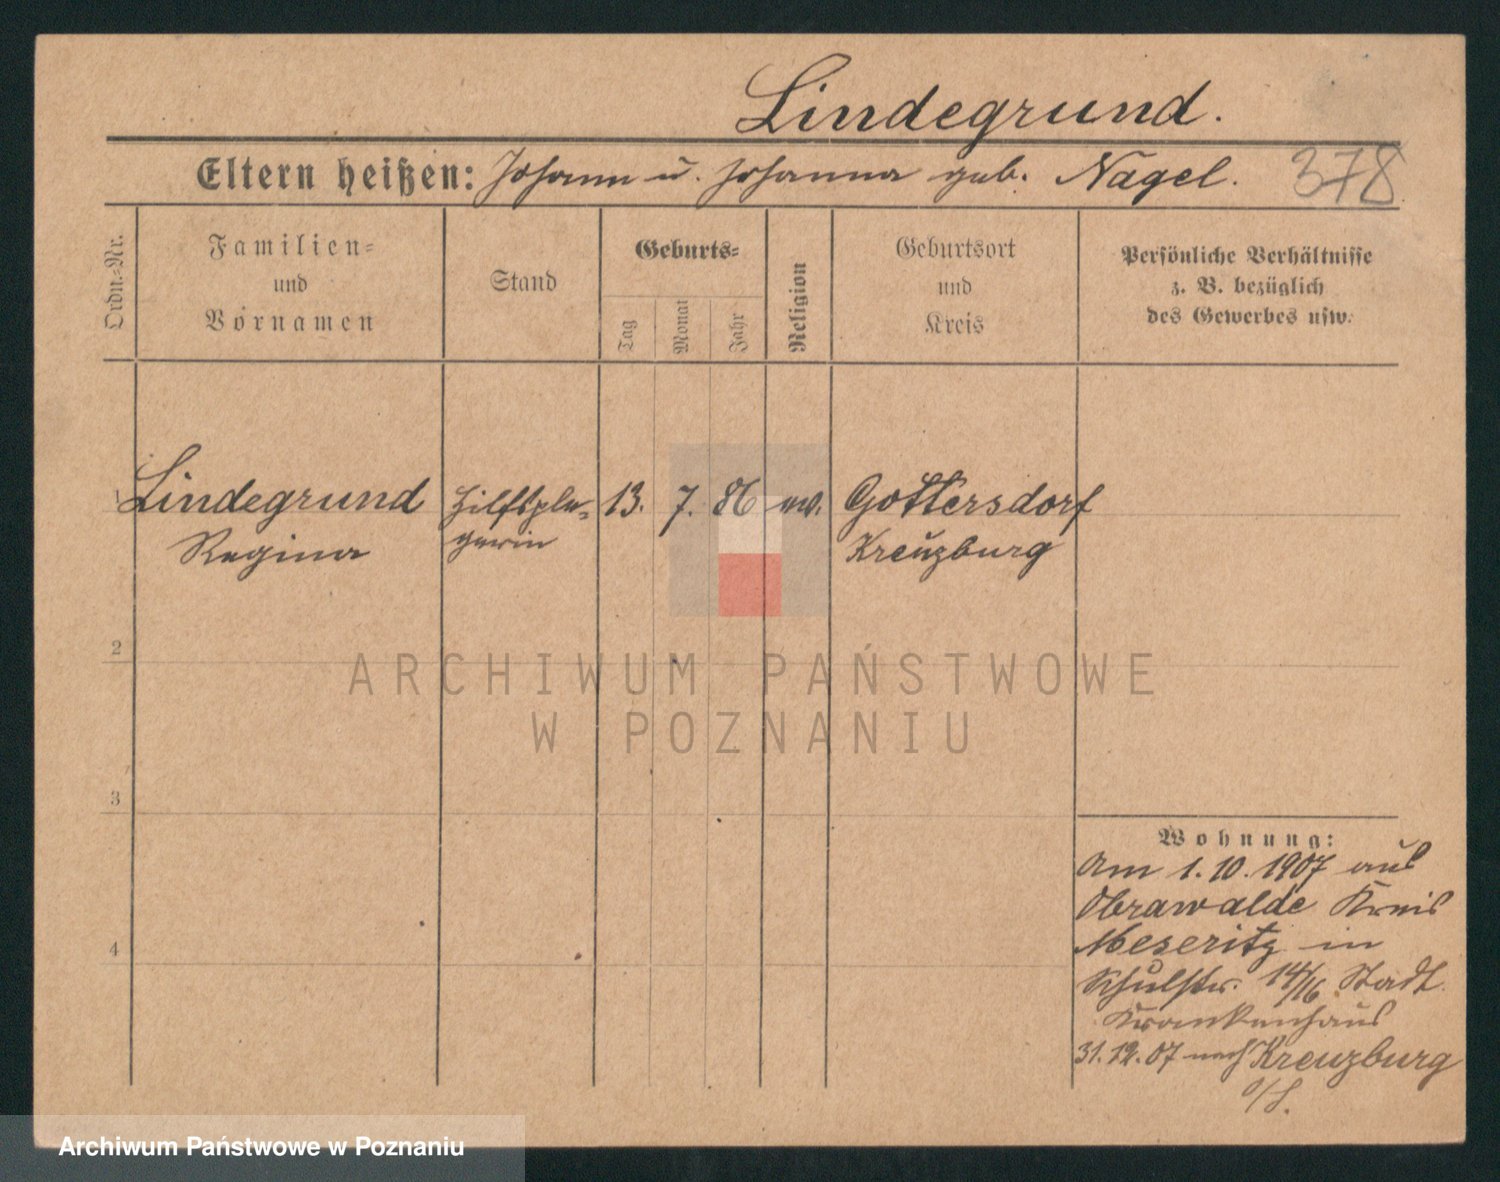 Lindegrund.
Eltern heißen: Johann u. Johanna geb. Nagel. 378
Ordn.-Nr.
Familien-
und
Vornamen
Stand
Geburts-
Tag
Monat
Jahr
Religion
Geburtsort
und
Kreis
Persönliche Verhältnisse
z. B. bezüglich
des Gewerbes usw.
Lindegrund Hilfspfle- 13. 7. 86 ev. Gottersdorf
Regina gerin Kreuzburg
2
3
4
Wohnung:
Am 1. 10. 1907 aus
Obrawalde Kreis
Meseritz in
Schulstr. 14/16 Stadt.
Krankenhaus
31. 12. 07 nach Kreuzburg
o/S.
ARCHIWUM PAŃSTWOWE
W POZNANIU
Archiwum Państwowe w Poznaniu